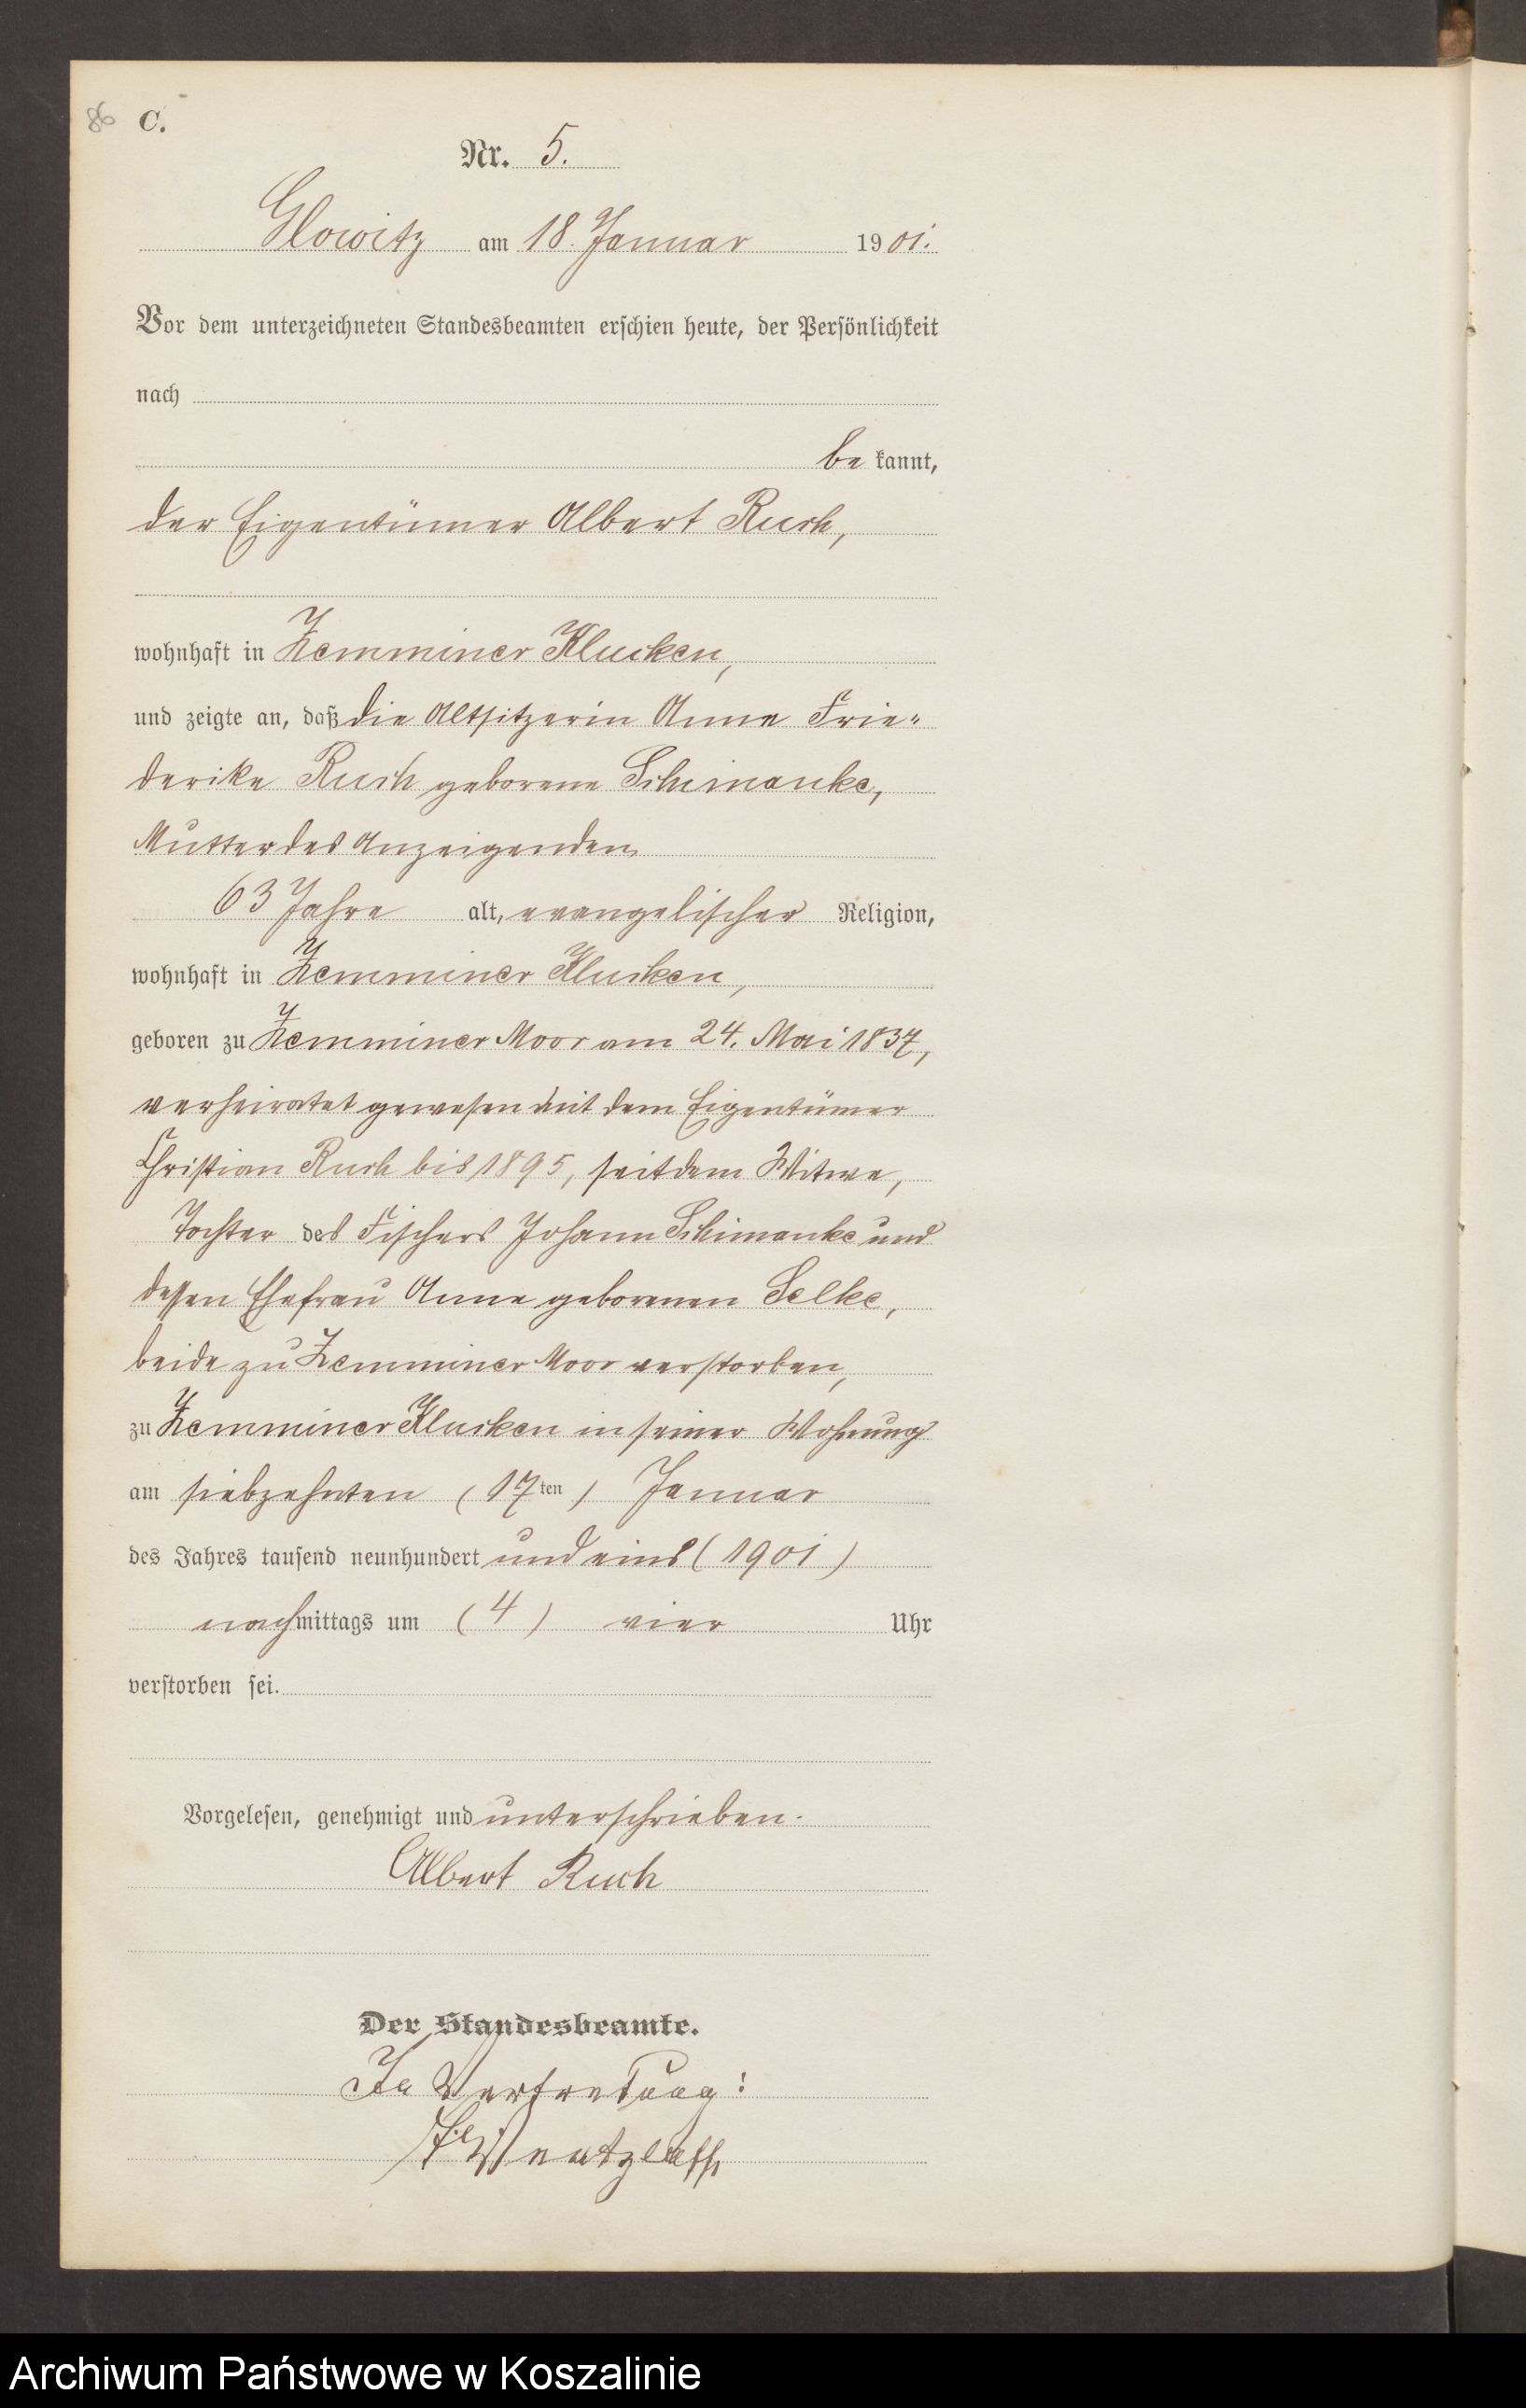 86 C.
Nr. 5.
Glowitz am 18. Januar 1901.
Vor dem unterzeichneten Standesbeamten erschien heute, der Persönlichkeit
nach
be kannt,
der Eigentümer Albert Ruch,
wohnhaft in Zemminer Klucken,
und zeigte an, daß die Altsitzerin Anne Frie-
derike Ruch geborene Schimanke,
Mutter des Anzeigenden
63 Jahre alt, evangelischer Religion,
wohnhaft in Zemminer Klucken,
geboren zu Zemminer Moor am 24. Mai 1837,
verheiratet gewesen mit dem Eigentümer
Christian Ruch bis 1895, seitdem Witwe,
Tochter des Fischers Johann Schimanke und
dessen Ehefrau Anne geborenen Selke,
beide zu Zemminer Moor verstorben,
zu Zemminer Klucken in seiner Wohnung
am siebzehnten (17ten) Januar
des Jahres tausend neunhundert und eins (1901)
nachmittags um (4) vier Uhr
verstorben sei.
Vorgelesen, genehmigt und unterschrieben.
Albert Ruch
Der Standesbeamte.
In Vertretung:
Wentzlaff
Archiwum Państwowe w Koszalinie